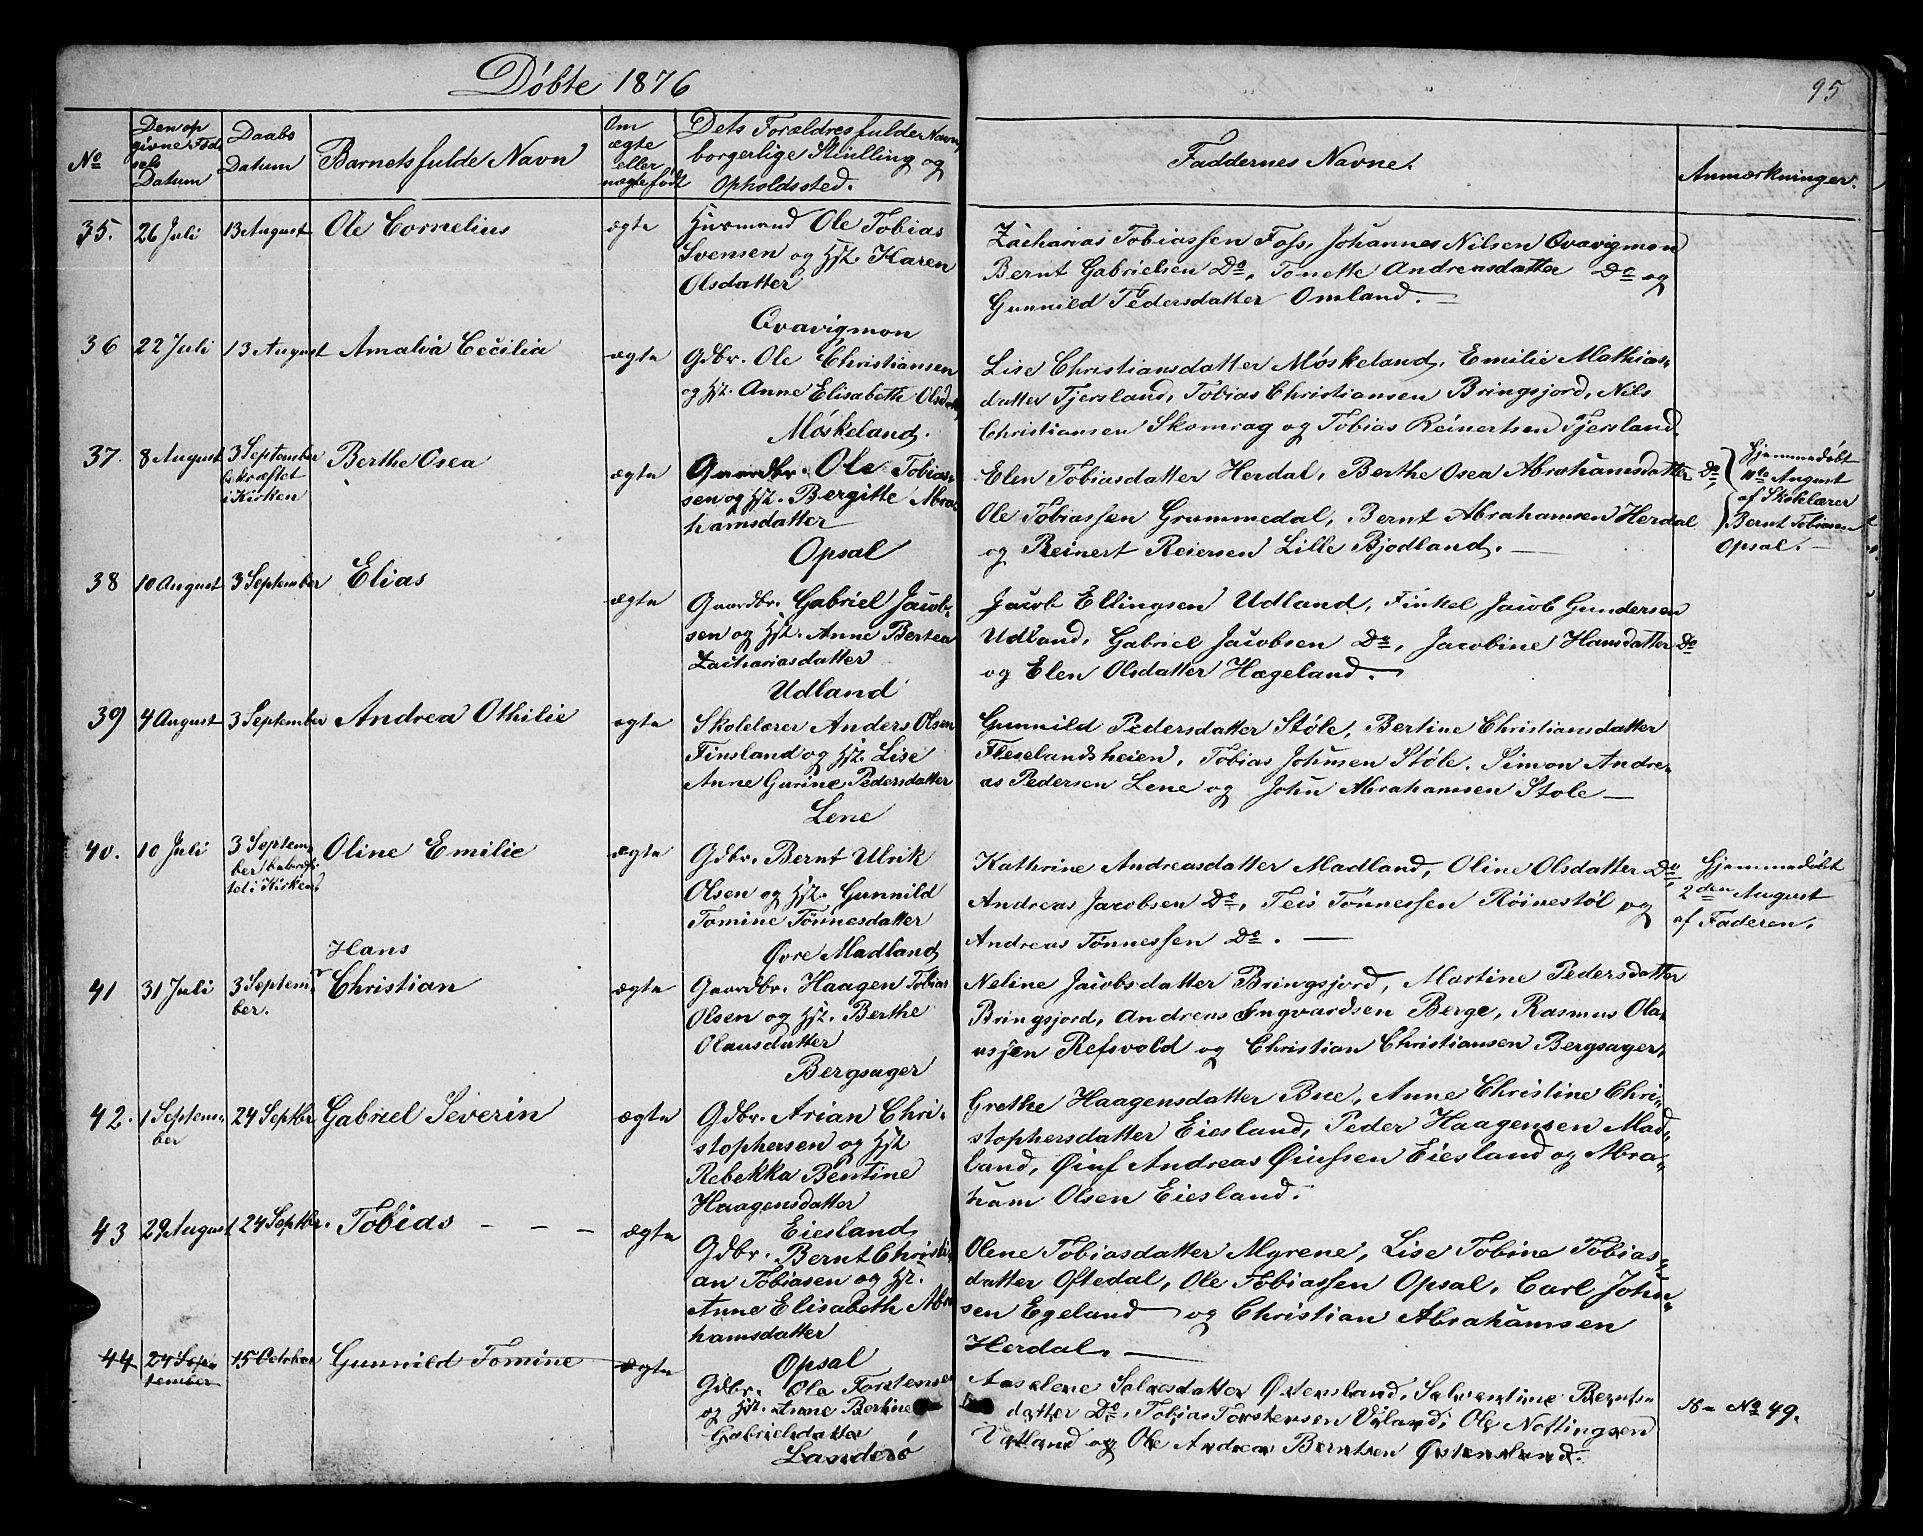 Döbte 1876
95
No
Den op
givne Föd
sels
Datum
Daabs
Datum
Barnets fulde Navn
Om
ægte
eller
uægte født
Dets Forældres fulde Navn,
borgerlige Stiilling og
Opholdssted.
Faddernes Navne.
Anmærkninger.
35. 26 Juli 13 August Ole Cornelius ægte
Huusmand Ole Tobias
Svensen og Hst. Karen
Olsdatter
Qvavigmon
Zacharias Tobiassen Foss, Johannes Nilsen Qvavigmon
Bernt Gabrielsen Do, Tonette Andreasdatter Do og
Gunnild Pedersdatter Omland. —
36 22 Juli 13 August Amalia Cecilia ægte
Gdbr. Ole Christiansen
og Hst. Anne Elisabeth Olsdatt
Möskeland.
Lise Christiansdatter Möskeland, Emilie Mathias-
datter Tjersland, Tobias Christiansen Bringsjord, Nils
Christiansen Skomrag og Tobias Reinertsen Tjersland.
37. 8 August 3 September
bekræftet
i Kirken
Berthe Osea ægte
Gaardbr. Ole Tobias-
sen og Hst. Bergitte Abra-
hamsdatter
Opsal
Elen Tobiasdatter Herdal, Berthe Osea Abrahamsdatter Do,
Ole Tobiassen Grummedal, Bernt Abrahamsen Herdal
og Reinert Reiersen Lille Bjodland. —
Hjemmedöbt
11te August
af Skolelærer
Bernt Tobiasen
Opsal. —
38 10 August 3 September Elias ægte
Gaardbr. Gabriel Jacob-
sen og Hst. Anne Bertea
Zachariasdatter
Udland
Jacob Ellingsen Udland, Finkel Jacob Gundersen
Udland, Gabriel Jacobsen Do, Jacobine Hansdatter Do
og Elen Olsdatter Hægeland. —
39 4 August 3 September Andrea Othilie ægte
Skolelærer Anders Olsen
Finsland og Hst. Lise
Anne Gurine Pedersdatter
Lene
Gunnild Pedersdatter Støle, Bertine Christiansdatter
Fleselandsheien, Tobias Johnsen Støle, Simon Andre-
as Pedersen Lene og John Abrahamsen Stole —
40. 10 Juli 3 Septem-
ber bekræf
tet i Kirken,
Oline Emilie ægte
Gdbr. Bernt Ulrik
Olsen og Hst. Gunnild
Tomine Tönnesdatter
Övre Madland
Kathrine Andreasdatter Madland, Oline Olsdatter Do,
Andreas Jacobsen Do, Teis Tönnessen Röinestöl og
Andreas Tönnessen Do. —
Hjemmedöbt
2den August
af Faderen.
41 31 Juli 3 Septem-
ber.
Hans
Christian ægte
Gaardbr. Haagen Tobias
Olsen og Hst. Berthe
Olausdatter
Bergsager
Neline Jacobsdatter Bringsjord, Martine Pedersdatter
Bringsjord, Andreas Ingvardsen Berge, Rasmus Ola-
usjen Refsvold og Christian Christiansen Bergsager.
42. 1 Septem-
ber
24 Septbr Gabriel Severin ægte
Gdbr. Arian Chri-
stophersen og Hst
Rebekka Bentine
Haagensdatter
Eiesland
Grethe Haagensdatter Bue, Anne Christine Chri-
stophersdatter Eiesland, Peder Haagensen Mad-
land, Öinf Andreas Öiufsen Eiesland og Abra-
ham Olsen Eiesland.
43 29 August 24 Septbr. Tobias — — — ægte
Gdbr. Bernt Christi-
an Tobiasen og Hst.
Anne Elisabeth Abra
hamsdatter
Opsal
Olene Tobiasdatter Myrene, Lise Tobine Tobias-
datter Oftedal, Ole Tobiassen Opsal, Carl John-
sen Egeland og Christian Abrahamsen
Herdal. —
44 24 Sep-
tember
15 October Gunnild Tomine ægte
Gdbr. Ole Torstensen
og Hst. Anne Bertine
Gabrielsdatter
Landerö
Aaselene Salvesdatter Östensland, Salventine Bernts-
datter Do, Tobias Torstensen Urland, Ole Nottingsen
Vatland og Ole Andreas Berntsen Östensland.
No 49.